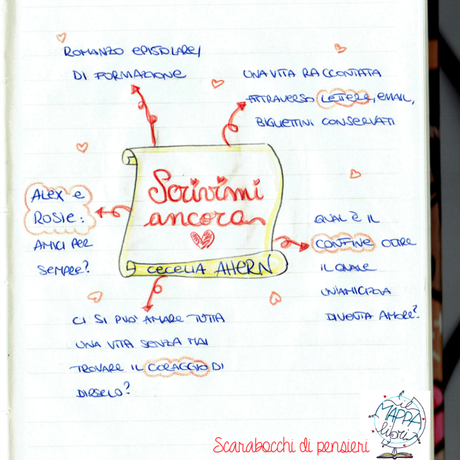 ROMANZO EPISTOLARE/
DI FORMAZIONE
UNA VITA RACCONTATA
ATTRAVERSO LETTERE, EMAIL,
BIGLIETTINI CONSERVATI
Scrivimi
ancora
CECELIA AHERN
ALEX E
ROSIE:
AMICI PER
SEMPRE?
QUAL È IL
CONFINE OLTRE
IL QUALE
UN'AMICIZIA
DIVENTA AMORE?
CI SI PUÒ AMARE TUTTA
UNA VITA SENZA MAI
TROVARE IL CORAGGIO DI
DIRSELO?
Scarabocchi di pensieri
il
MAPPA
libri